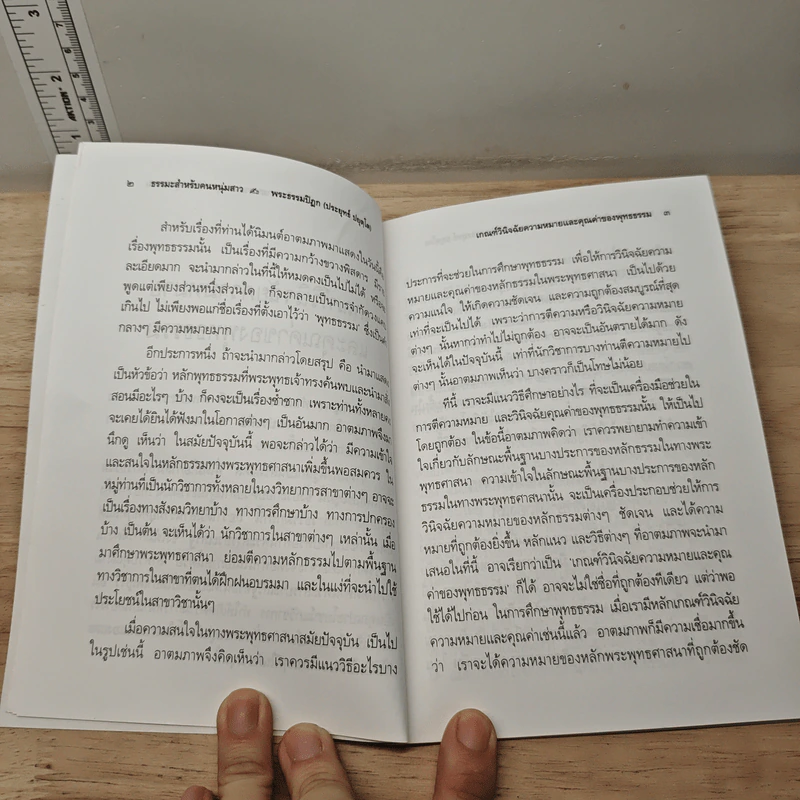 ๒ ธรรมะสำหรับคนหนุ่มสาว พระธรรมปิฎก (ประยุทธ์ ปยุตฺโต)
สำหรับเรื่องที่ท่านได้นิมนต์อาตมภาพมาแสดงในวันนี้
เรื่องพุทธธรรมนั้น เป็นเรื่องที่มีความกว้างขวางพิสดาร
ละเอียดมาก จะนำมากล่าวในที่นี้ให้หมดคงเป็นไปไม่ได้
พูดแต่เพียงส่วนหนึ่งส่วนใด ก็จะกลายเป็นการจำกัด
เกินไป ไม่เพียงพอแก่ชื่อเรื่องที่ตั้งเอาไว้ว่า 'พุทธธรรม'
กลางๆ มีความหมายมาก
อีกประการหนึ่ง ถ้าจะนำมากล่าวโดยสรุป คือ นำมาแสดง
เป็นหัวข้อว่า หลักพุทธธรรมที่พระพุทธเจ้าทรงค้นพบและนำมาสั่ง
สอนมีอะไรๆ บ้าง ก็คงจะเป็นเรื่องซ้ำซาก เพราะท่านทั้งหลายคง
จะเคยได้ยินได้ฟังมาในโอกาสต่างๆ เป็นอันมาก อาตมภาพจึงมา
นึกดู เห็นว่า ในสมัยปัจจุบันนี้ พอจะกล่าวได้ว่า มีความเข้าใจ
และสนใจในหลักธรรมทางพระพุทธศาสนาเพิ่มขึ้นพอสมควร ใน
หมู่ท่านที่เป็นนักวิชาการทั้งหลายในวงวิทยาการสาขาต่างๆ อาจจะ
เป็นเรื่องทางสังคมวิทยาบ้าง ทางการศึกษาบ้าง ทางการปกครอง
บ้าง เป็นต้น จะเห็นได้ว่า นักวิชาการในสาขาต่างๆ เหล่านั้น เมื่อ
มาศึกษาพระพุทธศาสนา ย่อมตีความหลักธรรมไปตามพื้นฐาน
ทางวิชาการในสาขาที่ตนได้ฝึกฝนอบรมมา และในแง่ที่จะนำไปใช้
ประโยชน์ในสาขาวิชานั้นๆ
เมื่อความสนใจในทางพระพุทธศาสนาสมัยปัจจุบัน เป็นไป
ในรูปเช่นนี้ อาตมภาพจึงคิดเห็นว่า เราควรมีแนววิธีอะไรบาง
เกณฑ์วินิจฉัยความหมายและคุณค่าของพุทธธรรม ๓
ประการที่จะช่วยในการศึกษาพุทธธรรม เพื่อให้การวินิจฉัยความ
หมายและคุณค่าของหลักธรรมในพระพุทธศาสนา เป็นไปด้วย
ความแน่ใจ ให้เกิดความชัดเจน และความถูกต้องสมบูรณ์ที่สุด
เท่าที่จะเป็นไปได้ เพราะว่าการตีความหรือวินิจฉัยความหมาย
ต่างๆ นั้นหากว่าทำไปไม่ถูกต้อง อาจจะเป็นอันตรายได้มาก ดัง
จะเห็นได้ในปัจจุบันนี้ เท่าที่นักวิชาการบางท่านตีความหมายไป
ต่างๆ นั้นอาตมภาพเห็นว่า บางคราวก็เป็นโทษไม่น้อย
ทีนี้ เราจะมีแนววิธีศึกษาอย่างไร ที่จะเป็นเครื่องมือช่วยใน
การตีความหมาย และวินิจฉัยคุณค่าของพุทธธรรมนั้น ให้เป็นไป
โดยถูกต้อง ในข้อนี้อาตมภาพคิดว่า เราควรพยายามทำความเข้า
ใจเกี่ยวกับลักษณะพื้นฐานบางประการของหลักธรรมในทางพระ
พุทธศาสนา ความเข้าใจในลักษณะพื้นฐานบางประการของหลัก
ธรรมในทางพระพุทธศาสนานั้น จะเป็นเครื่องประกอบช่วยให้การ
วินิจฉัยความหมายของหลักธรรมต่างๆ ชัดเจน และได้ความ
หมายที่ถูกต้องยิ่งขึ้น หลักแนว และวิธีต่างๆ ที่อาตมภาพจะนำมา
เสนอในที่นี้ อาจเรียกว่าเป็น 'เกณฑ์วินิจฉัยความหมายและคุณ
ค่าของพุทธธรรม' ก็ได้ อาจจะไม่ใช่ชื่อที่ถูกต้องทีเดียว แต่ว่าพอ
ใช้ได้ไปก่อน ในการศึกษาพุทธธรรม เมื่อเรามีหลักเกณฑ์วินิจฉัย
ความหมายและคุณค่าเช่นนี้แล้ว อาตมภาพก็มีความเชื่อมากขึ้น
ว่า เราจะได้ความหมายของหลักพระพุทธศาสนาที่ถูกต้องชัด
ACTION
1 2 3